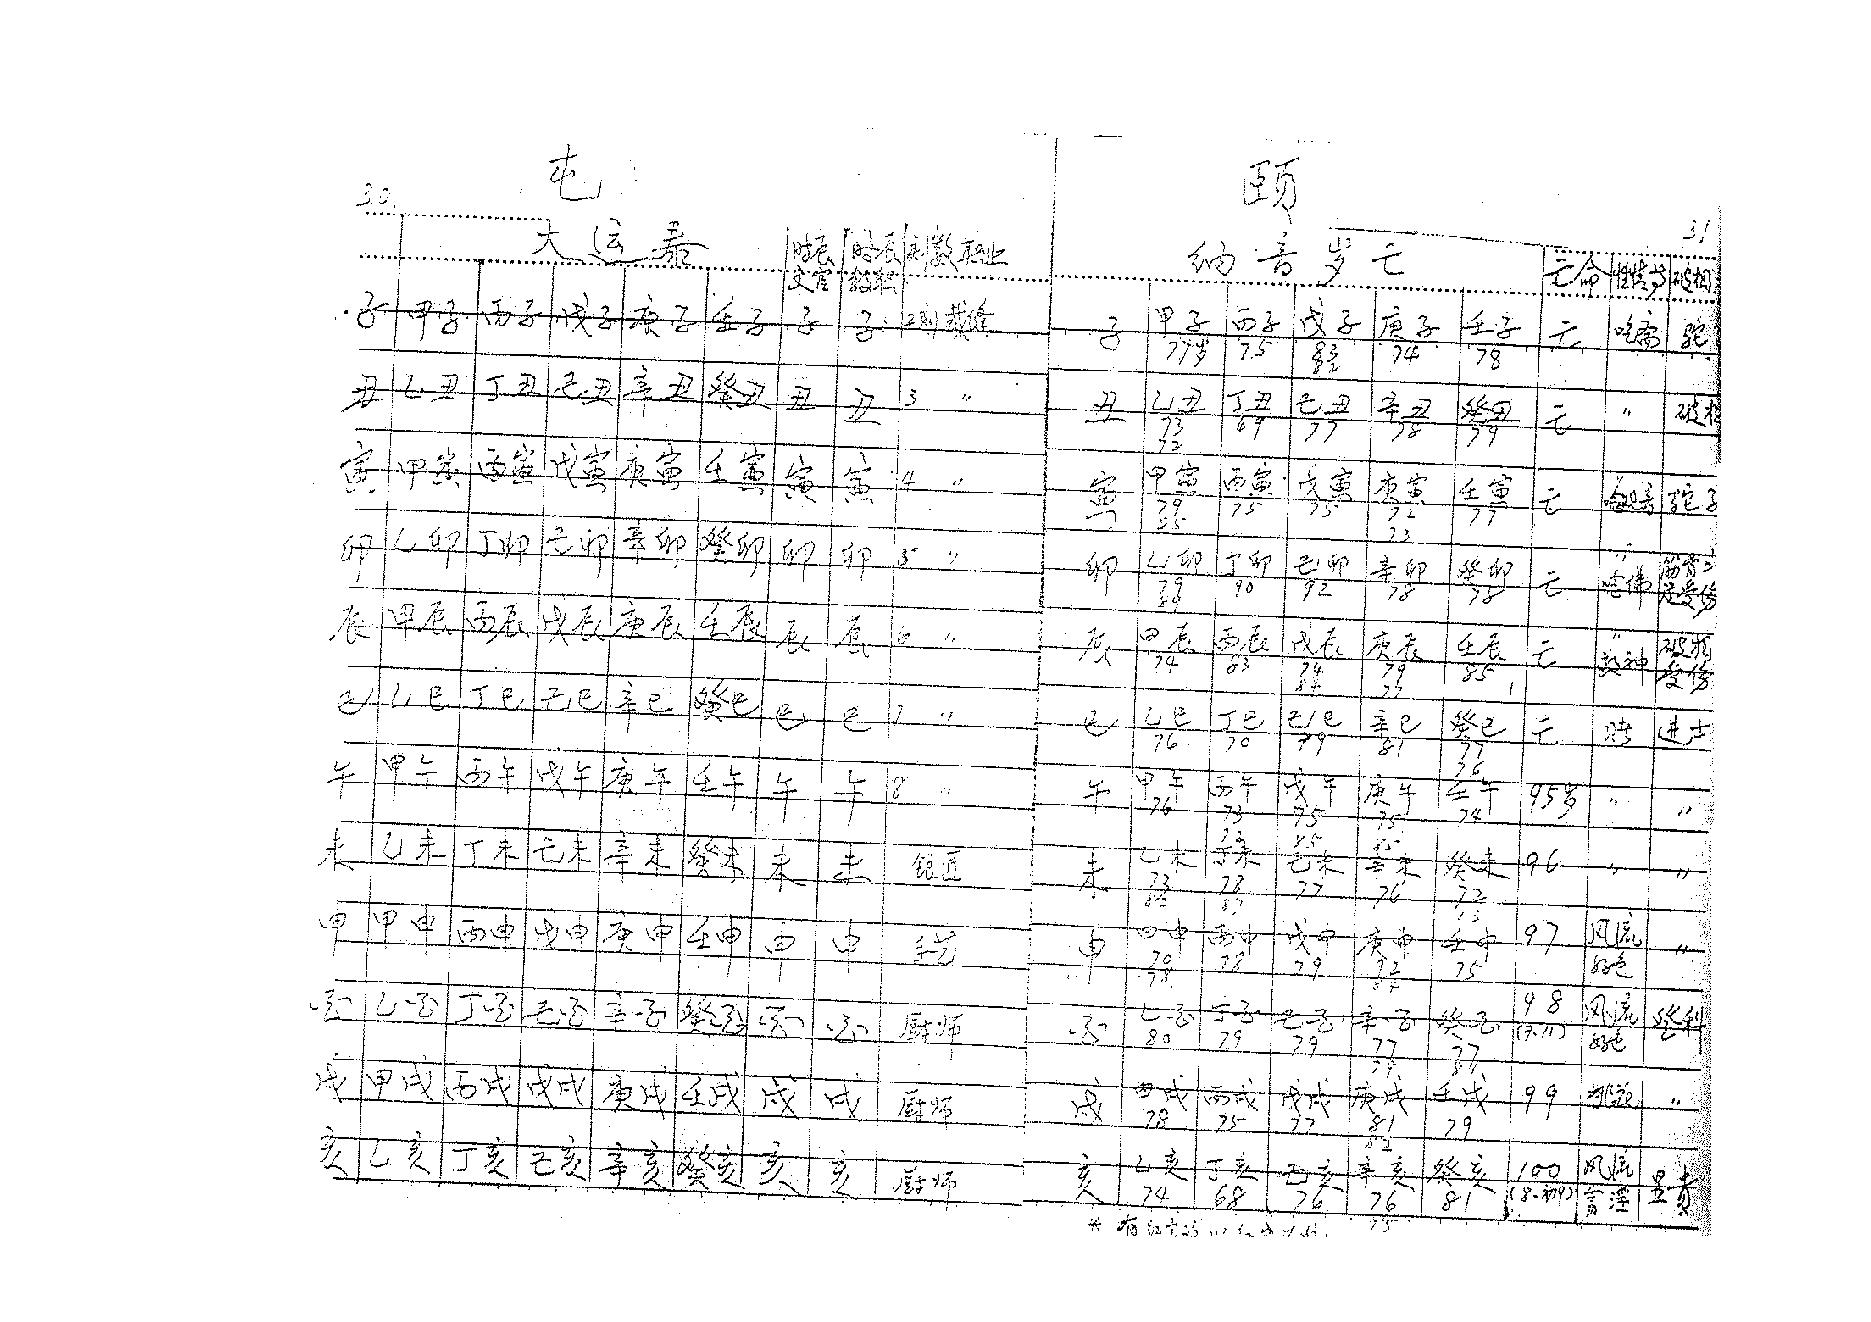 屯
30.
大运泰 时辰 时辰 刻数 职业
子 甲子 丙子 戊子 庚子 壬子 子 子 2刻 裁缝
丑 乙丑 丁丑 己丑 辛丑 癸丑 丑 丑 3 〃
寅 甲寅 丙寅 戊寅 庚寅 壬寅 寅 寅 4 〃
卯 乙卯 丁卯 己卯 辛卯 癸卯 卯 卯 5 〃
辰 甲辰 丙辰 戊辰 庚辰 壬辰 辰 辰 6 〃
巳 乙巳 丁巳 己巳 辛巳 癸巳 巳 巳 7 〃
午 甲午 丙午 戊午 庚午 壬午 午 午 8 〃
未 乙未 丁未 己未 辛未 癸未 未 未 银匠
申 甲申 丙申 戊申 庚申 壬申 申 申 手艺
酉 乙酉 丁酉 己酉 辛酉 癸酉 酉 酉 厨师
戌 甲戌 丙戌 戊戌 庚戌 壬戌 戌 戌 厨师
亥 乙亥 丁亥 己亥 辛亥 癸亥 亥 亥 厨师
颐
31
纳音岁亡 亡命 性情 破相
子 甲子 丙子 戊子 庚子 壬子 亡 吃斋 驼
77岁 75 83 74 78
丑 乙丑 丁丑 己丑 辛丑 癸丑 亡 〃 破相
73 69 77 78 79
72
寅 甲寅 丙寅 戊寅 庚寅 壬寅 亡 驼子
79 75 75 72 77
卯 乙卯 丁卯 己卯 辛卯 癸卯 亡 念佛 筋骨 受伤
79 90 92 78 78
辰 甲辰 丙辰 戊辰 庚辰 壬辰 亡 敬神 破相 受伤
74 83 79 85
巳 乙巳 丁巳 己巳 辛巳 癸巳 亡 进士
76 70 79 81 77
76
午 甲午 丙午 戊午 庚午 壬午 95岁 〃 〃
76 73 75 75 74
未 乙未 丁未 己未 辛未 癸未 96 〃 〃
73 78 77 76 72
申 甲申 丙申 戊申 庚申 壬申 97 风流 好色 〃
70 78 79 75
78
酉 乙酉 丁酉 己酉 辛酉 癸酉 98 风流 好色 登科
80 79 79 77 77
戌 甲戌 丙戌 戊戌 庚戌 壬戌 99 〃
78 75 77 81 79
亥 乙亥 丁亥 己亥 辛亥 癸亥 100 风流 言淫 显贵
74 68 76 76 81 (8.初9)
75